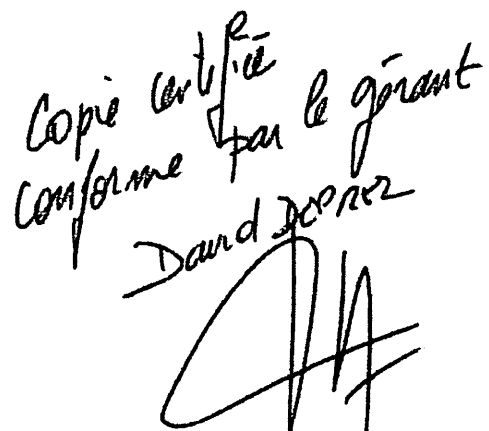 Copie certifiée
conforme par le gérant
David DEPREZ